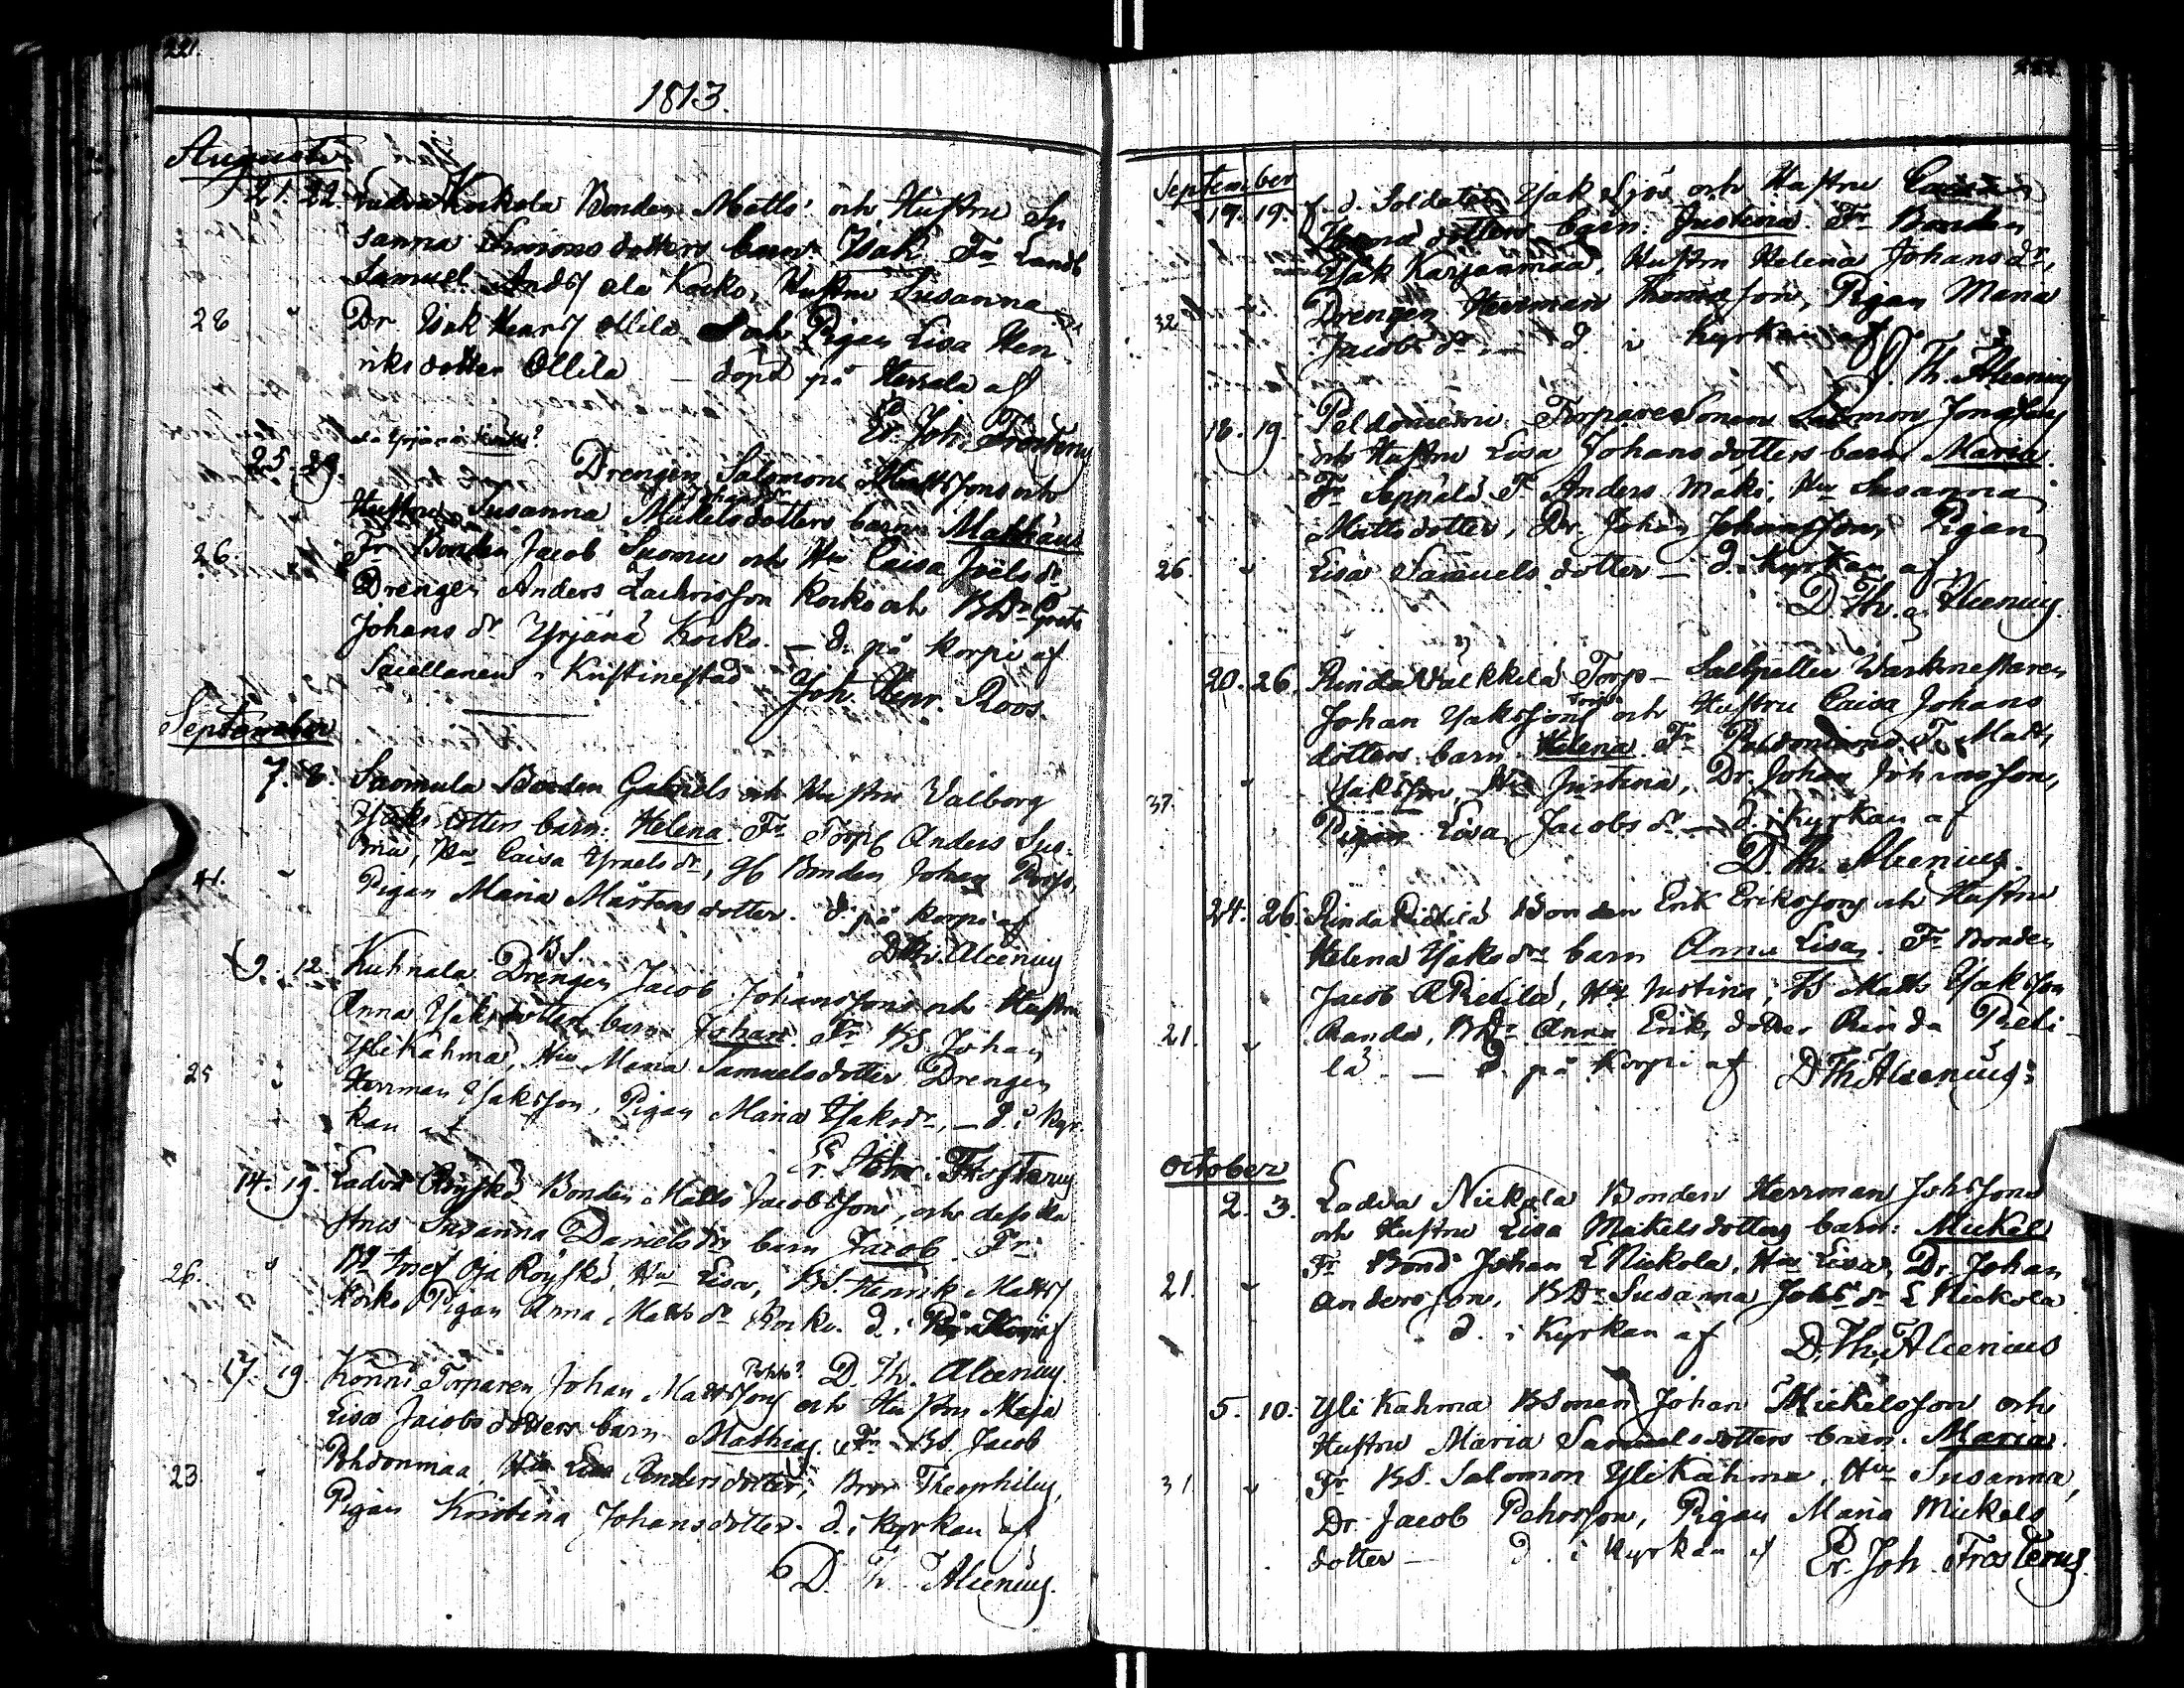 221.
1813.
Augusti
21. 22. Ladva Kockola Bonden Matts' och Hustru Su
sanna Simonsdotters barn Isak Fr Landb
Samuel Andsf ala Kocko, Hustru Susanna
28 " Dr Isak Henrsf Ollila Joh Pigan Lisa Hen
riksdotter Ollila — döpd på Herrala af
Er. Joh. Frosterus
25. 29. Drengen Salomons Mattssons och
Johansdr
Hustru Susanna Mickelsdotters barn Mathäus
26. " Fr Bonden Jacob Suomu och Hu Caisa Joëlsdr
Drengen Anders Zachrisson Kocko och BDr Greta
Johansdr Yrjänä Kocko. — d. på Korpi af
Sacellanen i Kristinestad Joh. Henr. Roos.
September
7. 8. Suomula Bonden Gabriels och Hustru Valborg
Isaksdotters barn: Helena. Fr Torp Anders Suo-
mu, Hu Caisa Israelsdr, gf Bonden Johan
41. " Pigan Maria Mårtensdotter. d. på Korpi af
D. Th. Alcenius
BS.
9. 12. Kuhnala Drengen Jacob Johanssons och Hustru
Anna Isaksdotters barn Johan. Fr BS. Johan
Ylikahma, Hu Maria Samuelsdotter Drengen
25 " Herrman Isaksson, Pigan Maria Isaksdr, — d. i kyr-
kan af
Er. Joh. Frosterus
14. 19. Ladva Röyskö Bonden Matts Jacobsson, och dess Hu
strus Susanna Danielsdrs barn Jacob. Fr
26. " Bd Josef Oja Röyskö, Hu Lisa, BS. Henrik Mattsf
Kocko, Pigan Anna Mattsdr Kocko. d. i
D. Th. Alcenius.
17. 19 Könni Torparen Johan Mattssons och Hustru Maja
Lisa Jacobsdotters barn Mathias. Fr BS. Jacob
23. " Pohdonmaa, Hu Lisa Andersdotter, Bror Theophilus,
Pigan Kristina Johansdotter. d. i kyrkan af
D. Th. Alcenius.
September
17. 19. f. d. Soldaten Isak Sjös och Hustru Caisa
dotters barn: Justina. Fr Bonden
Isak Karjanmaa, Hustru Helena Johansdr,
32 " Drengen Herrman Thomasson, Pigan Maria
Jacobsdr — d. i kyrkan af
D. Th. Alcenius
18. 19. Peldoniemi Torparesonen Salomon
och Hustru Lisa Johansdotters barn Maria.
Fr Seppälä T. Anders Mäki, Hu Susanna
Mattsdotter, Dr. Johan Johansson, Pigan
26. " Lisa Samuelsdotter — d. i Kyrkan af
D. Th. Alcenius.
20. 26. Rinda Välkkilä Torp — Salpetter Werkmestaren
Johan Isaksson och Hustru Caisa Johans
dotters barn Helena. Fr Peldoniemi T. Matts
37. " Isaksson, Hu Justina, Dr. Johan Johansson,
Pigan Lisa Jacobsdr — d. i kyrkan af
D. Th. Alcenius.
24. 26. Rinda Pietilä Bonden Erik Eriksson och Hustru
Helena Isaksdrs barn Anna Lisa. Fr Bonden
Jacob A Pietilä, Hu Justina, BS Matts Isaksson
21. " Randa, BDr Anna Eriksdotter Rinda Pieti-
lä — d. på Korpi af D. Th. Alcenius.
October
2. 3. Ladva Nickola Bonden Herrman Johssons
och Hustru Lisa Mickelsdotters barn: Mickel
Fr Bond. Johan L Nickola, Hu Lisa, Dr. Johan
21. " Andersson, BDr Susanna Johsdr L Nickola
d. i Kyrkan af D. Th. Alcenius
5. 10. Yli Kahma BSonen Johan Mickelsson och
Hustru Maria Samuelsdotters barn. Maria.
31. " Fr BS. Salomon Ylikahma, Hu Susanna,
Dr. Jacob Pehrsson, Pigan Maria Mickels
dotter — d. i Kyrkan af Er. Joh. Frosterus.